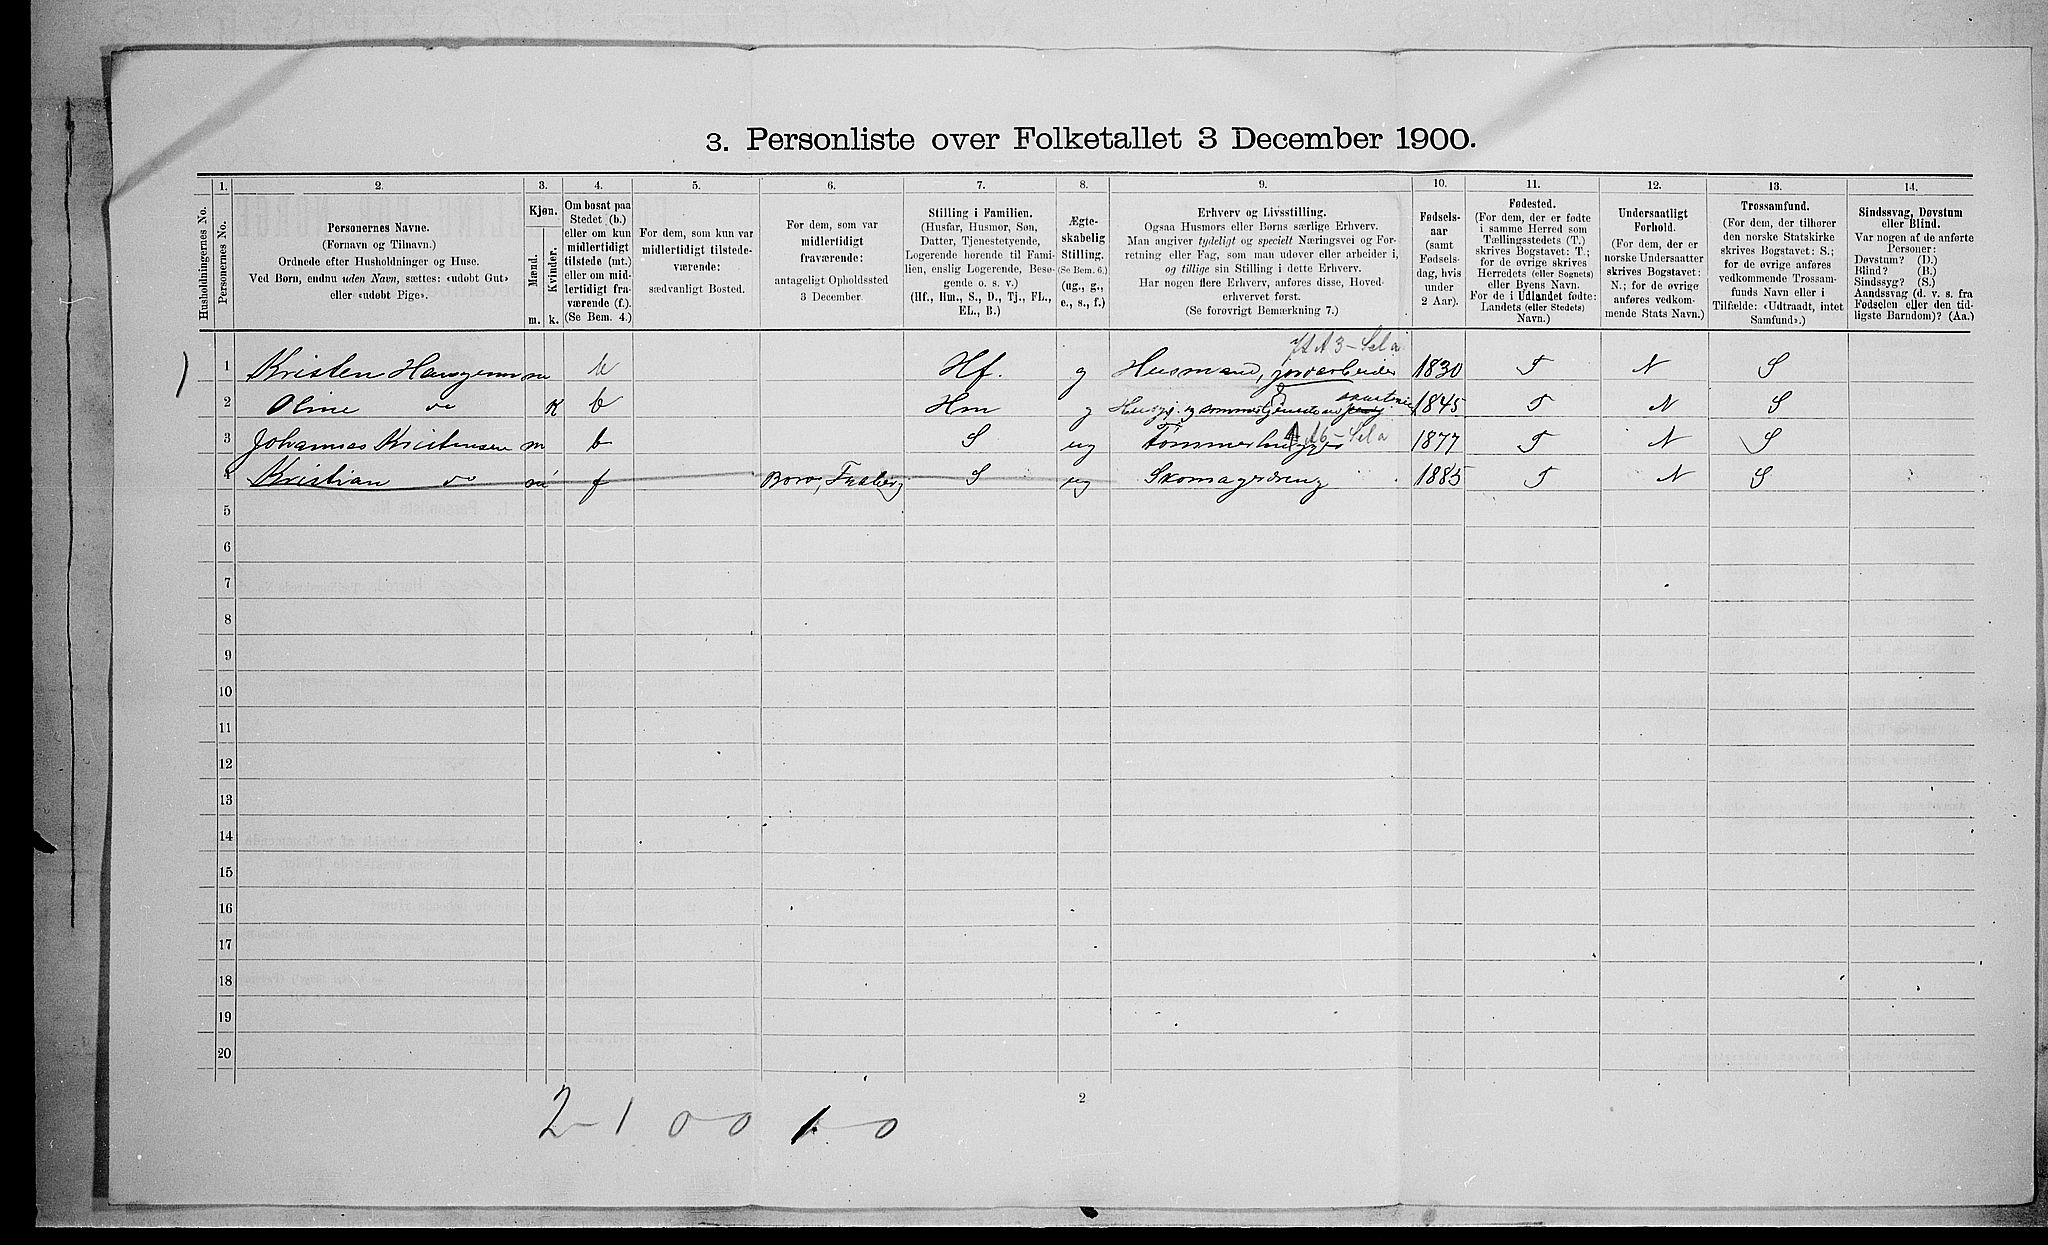 3. Personliste over Folketallet 3 December 1900.
1. 2. 3. 4. 5. 6. 7. 8. 9. 10. 11. 12. 13. 14.
Husholdningernes No.
Personernes No.
Personernes Navne.
(Fornavn og Tilnavn.)
Ordnede efter Husholdninger og Huse.
Ved Børn, endnu uden Navn, sættes: «udøbt Gut»
eller «udøbt Pige».
Kjøn.
Mænd.
Kvinder.
m. k.
Om bosat paa
Stedet (b.)
eller om kun
midlertidigt
tilstede (mt.)
eller om mid-
lertidigt fra-
værende (f.)
(Se Bem. 4.)
For dem, som kun var
midlertidigt tilstede-
værende:
sædvanligt Bosted.
For dem, som var
midlertidigt
fraværende:
antageligt Opholdssted
3 December.
Stilling i Familien.
(Husfar, Husmor, Søn,
Datter, Tjenestetyende,
Logerende hørende til Fami-
lien, enslig Logerende, Besø-
gende o. s. v.)
(Hf., Hm., S., D., Tj., FL.,
EL., B.)
Ægte-
skabelig
Stilling.
(Se Bem. 6.)
(ug., g.,
e., s., f.)
Erhverv og Livsstilling.
Ogsaa Husmors eller Børns særlige Erhverv.
Man angiver tydeligt og specielt Næringsvei og For-
retning eller Fag, som man udøver eller arbeider i,
og tillige sin Stilling i dette Erhverv.
Har nogen flere Erhverv, anføres disse, Hoved-
erhvervet først.
(Se forøvrigt Bemærkning 7.)
Fødsels-
aar
(samt
Fødsels-
dag, hvis
under
2 Aar).
Fødested.
(For dem, der er fødte
i samme Herred som
Tællingsstedets (T.)
skrives Bogstavet: T.;
for de øvrige skrives
Herredets (eller Sognets)
eller Byens Navn.
For de i Udlandet fødte:
Landets (eller Stedets)
Navn.)
Undersaatligt
Forhold.
(For dem, der er
norske Undersaatter
skrives Bogstavet:
N.; for de øvrige
anføres vedkom-
mende Stats Navn.)
Trossamfund.
(For dem, der tilhører
den norske Statskirke
skrives Bogstavet: S.;
for de øvrige anføres
vedkommende Trossam-
funds Navn eller i
Tilfælde: «Udtraadt, intet
Samfund».)
Sindssvag, Døvstum
eller Blind.
Var nogen af de anførte
Personer:
Døvstum? (D.)
Blind? (B.)
Sindssyg? (S.)
Aandssvag (d. v. s. fra
Fødselen eller den tid-
ligste Barndom)? (Aa.)
1 Kristen m b Hf. g Husmand, jordarbeider 1830 T N S
2 Oline do K b Hm g 1845 T N S
3 Johannes Kristensen m b S ug Tømmerhugger 1877 T N S
4 Kristian do m f Faaberg S ug Skomagerdreng 1885 T N S
5
6
7
8
9
10
11
12
13
14
15
16
17
18
19
20
2
2-1 0 0 1-0